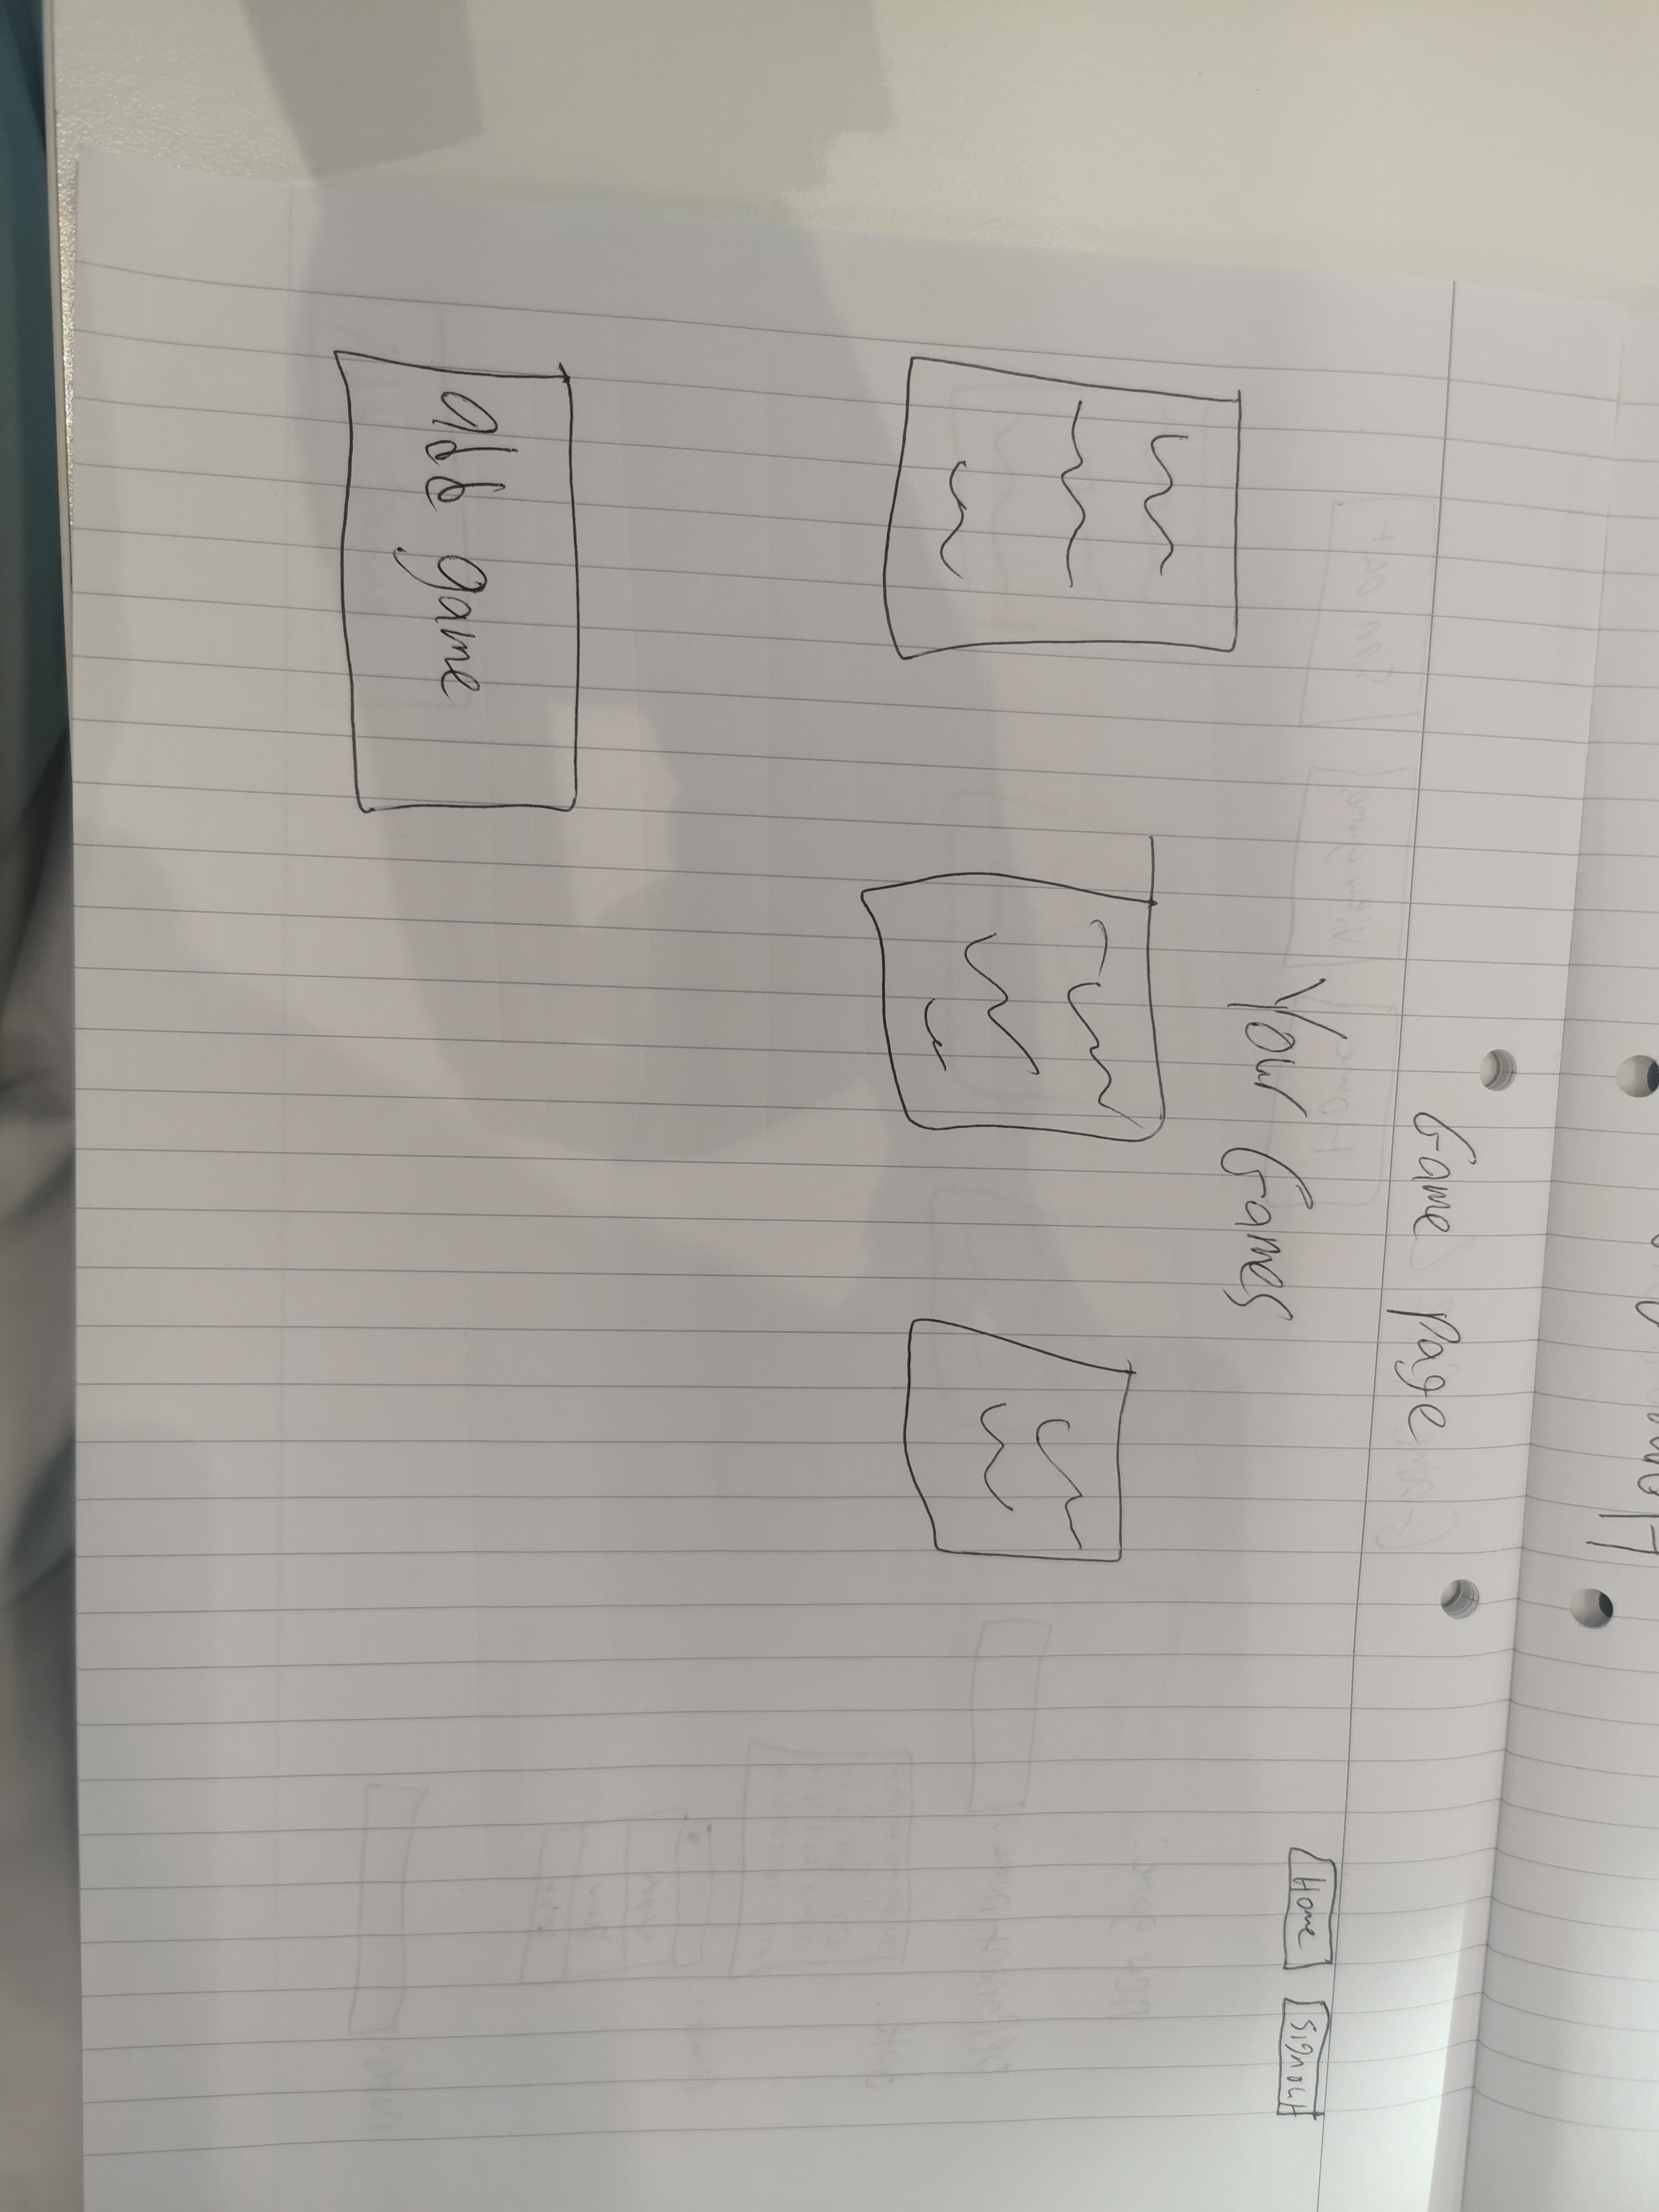 Game Page
Home
Signout
Your Games
add game